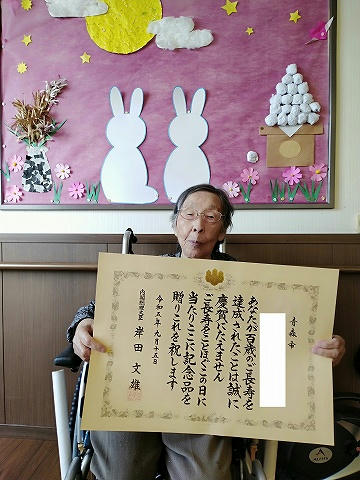 青森市
あなたが百歳のご長寿を
達成されたことは誠に
慶賀にたえません
ご長寿をことほぐこの日に
当たりここに記念品を
贈りこれを祝します
令和五年九月十五日
内閣総理大臣 岸田文雄